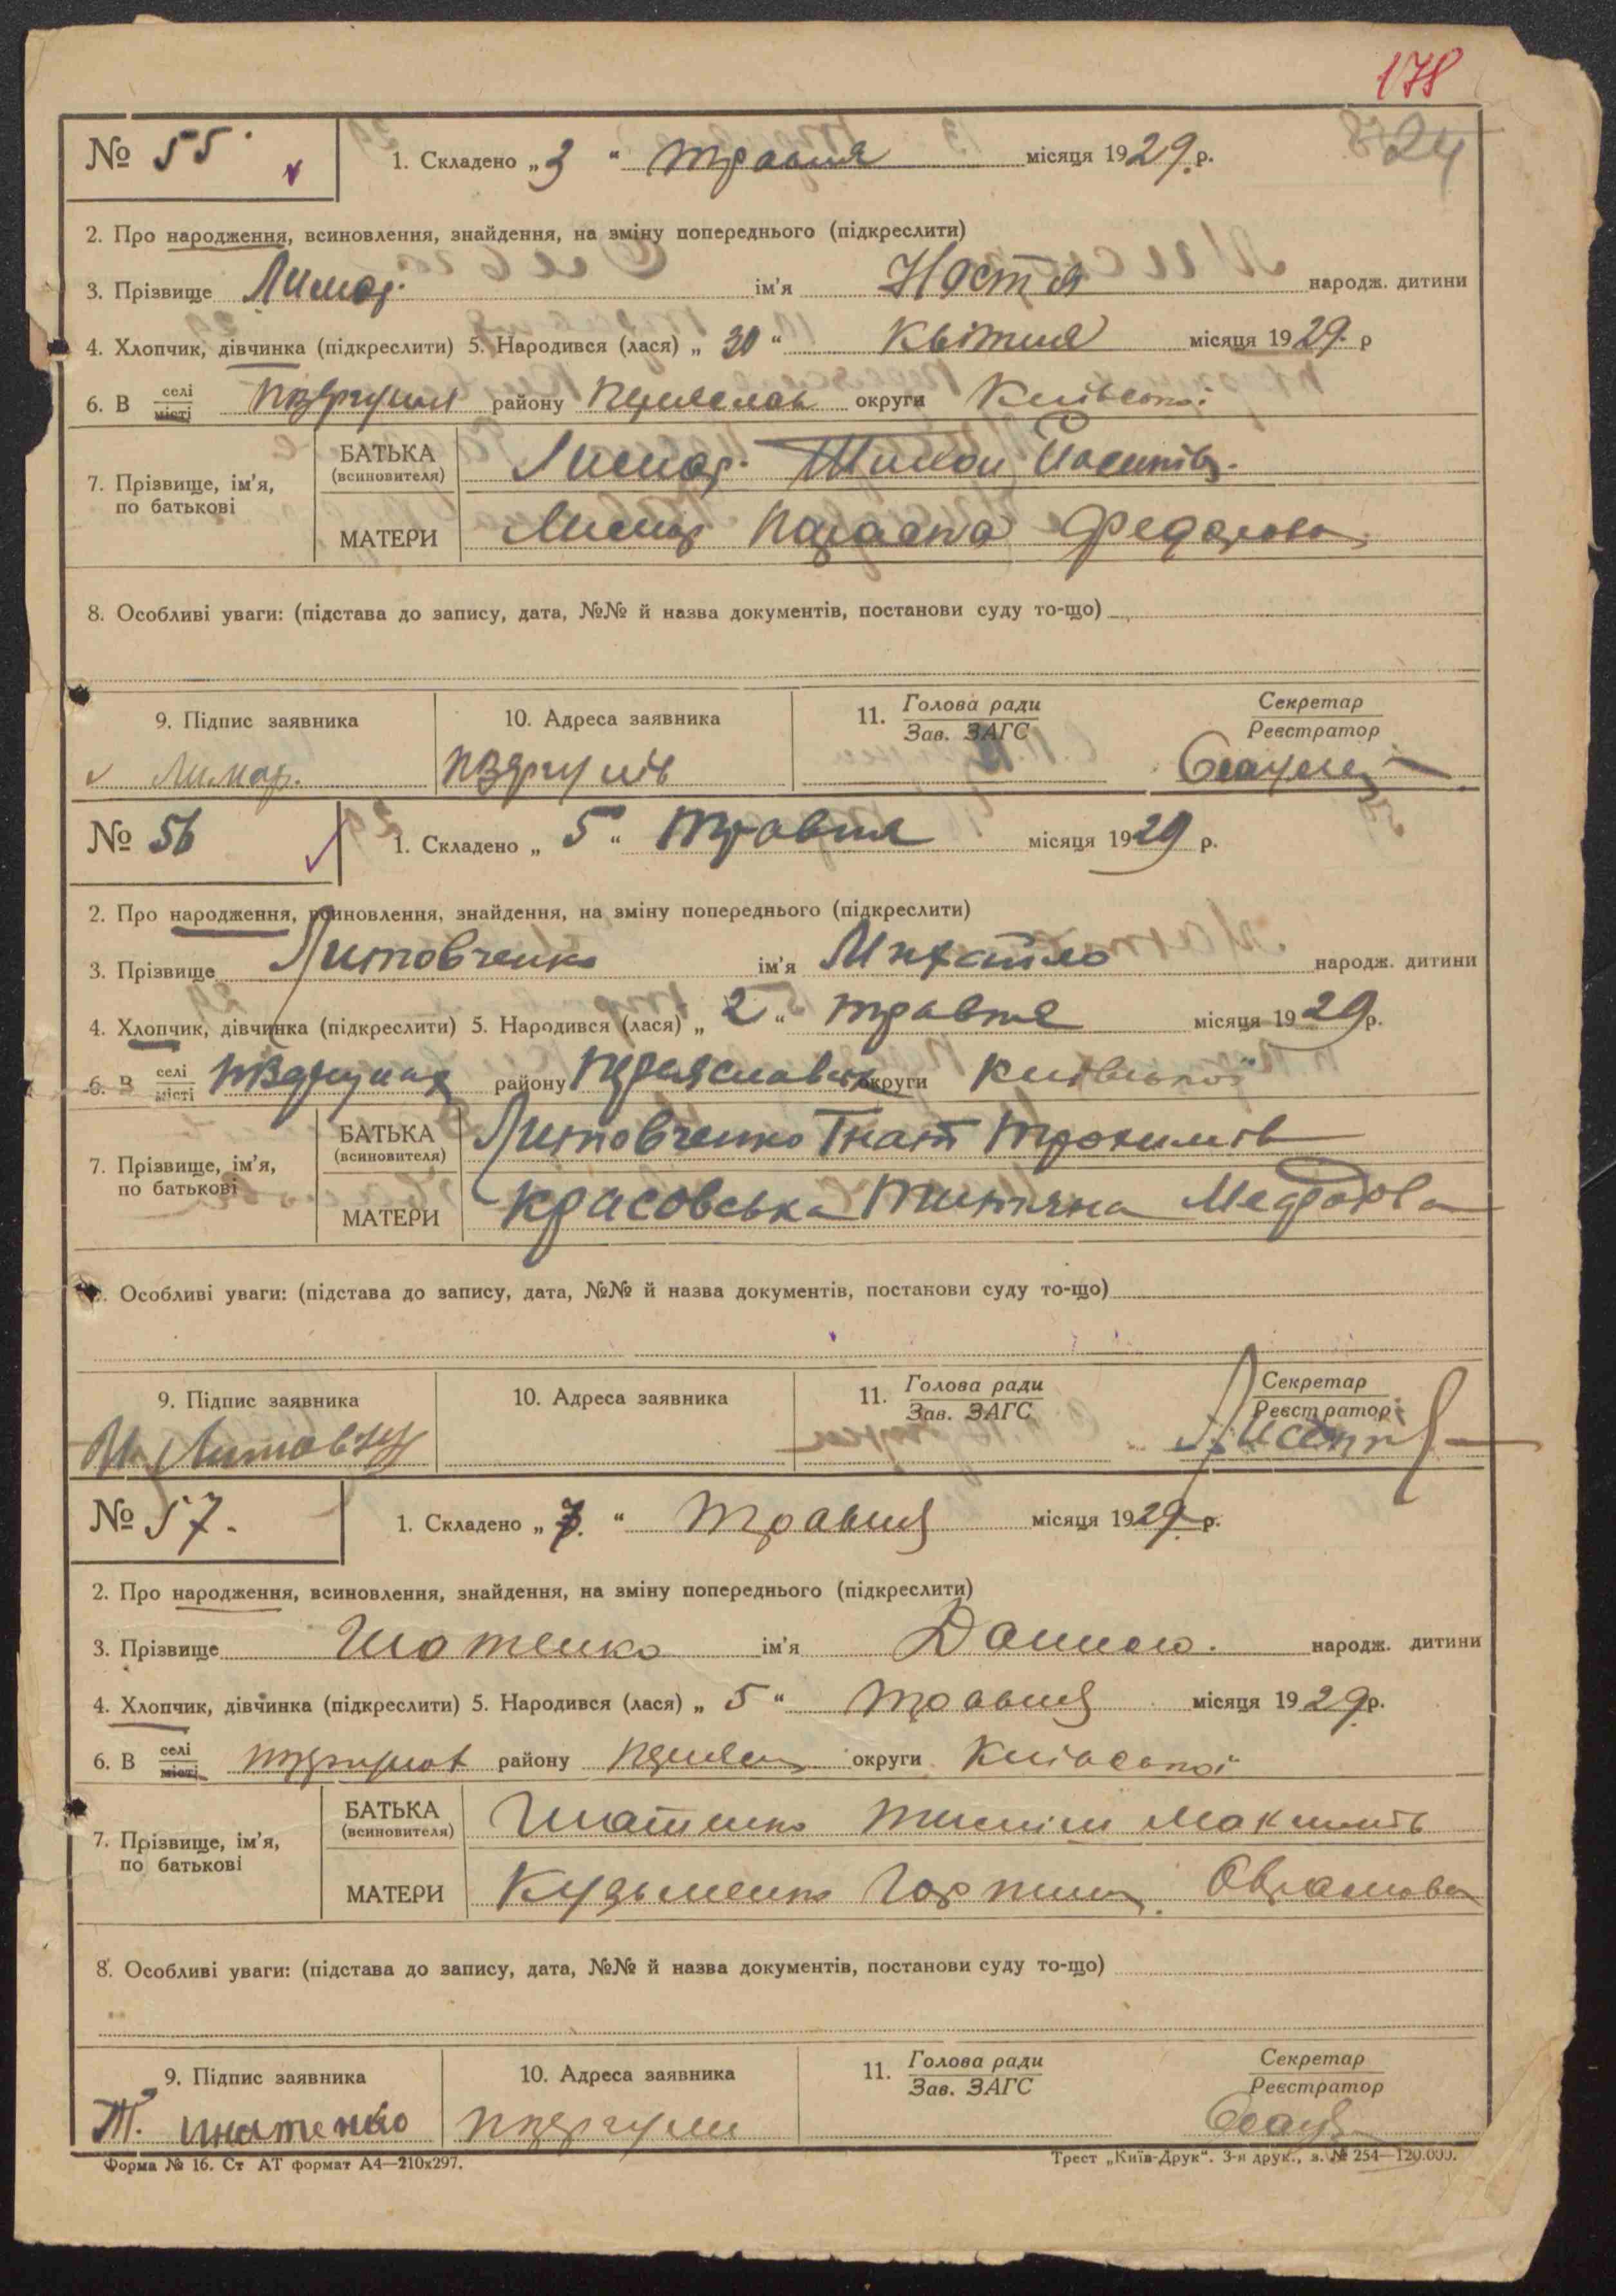 178
24
№ 55. 1. Складено „3“ травня місяця 1929. р.
2. Про народження, всиновлення, знайдення, на зміну попереднього (підкреслити)
3. Прізвище Лимар. ім'я Настя народж. дитини
4. Хлопчик, дівчинка (підкреслити) 5. Народився (лася) „30“ Квітня місяця 1929. р
6. В селі місті району округи Київської
7. Прізвище, ім'я, по батькові
БАТЬКА (всиновителя) Лимар. Тимон Йосипів.
МАТЕРИ Лимар Параска Федорова
8. Особливі уваги: (підстава до запису, дата, №№ й назва документів, постанови суду то-що)
9. Підпис заявника 10. Адреса заявника 11. Голова ради Зав. ЗАГС Секретар Реєстратор
Лимар.
№ 56 1. Складено „5“ травня місяця 1929 р.
2. Про народження, всиновлення, знайдення, на зміну попереднього (підкреслити)
3. Прізвище Литовченко ім'я Михайло народж. дитини
4. Хлопчик, дівчинка (підкреслити) 5. Народився (лася) „2“ травня місяця 1929 р.
6. В селі місті району Переяславськ округи Київської
7. Прізвище, ім'я, по батькові
БАТЬКА (всиновителя) Литовченко Гнат Трохимів
МАТЕРИ Красовська Титяна
8. Особливі уваги: (підстава до запису, дата, №№ й назва документів, постанови суду то-що)
9. Підпис заявника 10. Адреса заявника 11. Голова ради Зав. ЗАГС Секретар Реєстратор
№ 57. 1. Складено „7.“ травня місяця 1929. р.
2. Про народження, всиновлення, знайдення, на зміну попереднього (підкреслити)
3. Прізвище Гнатенко ім'я Данило. народж. дитини
4. Хлопчик, дівчинка (підкреслити) 5. Народився (лася) „5“ травня місяця 1929. р.
6. В селі місті району округи Київської
7. Прізвище, ім'я, по батькові
БАТЬКА (всиновителя) Гнатенко Максимів
МАТЕРИ Кузьменко Горпина Оврамова
8. Особливі уваги: (підстава до запису, дата, №№ й назва документів, постанови суду то-що)
9. Підпис заявника 10. Адреса заявника 11. Голова ради Зав. ЗАГС Секретар Реєстратор
Т. гнатенко
Форма № 16. Ст АТ формат А4—210х297. Трест „Київ-Друк“. 3-я друк., з. № 254—120.000.